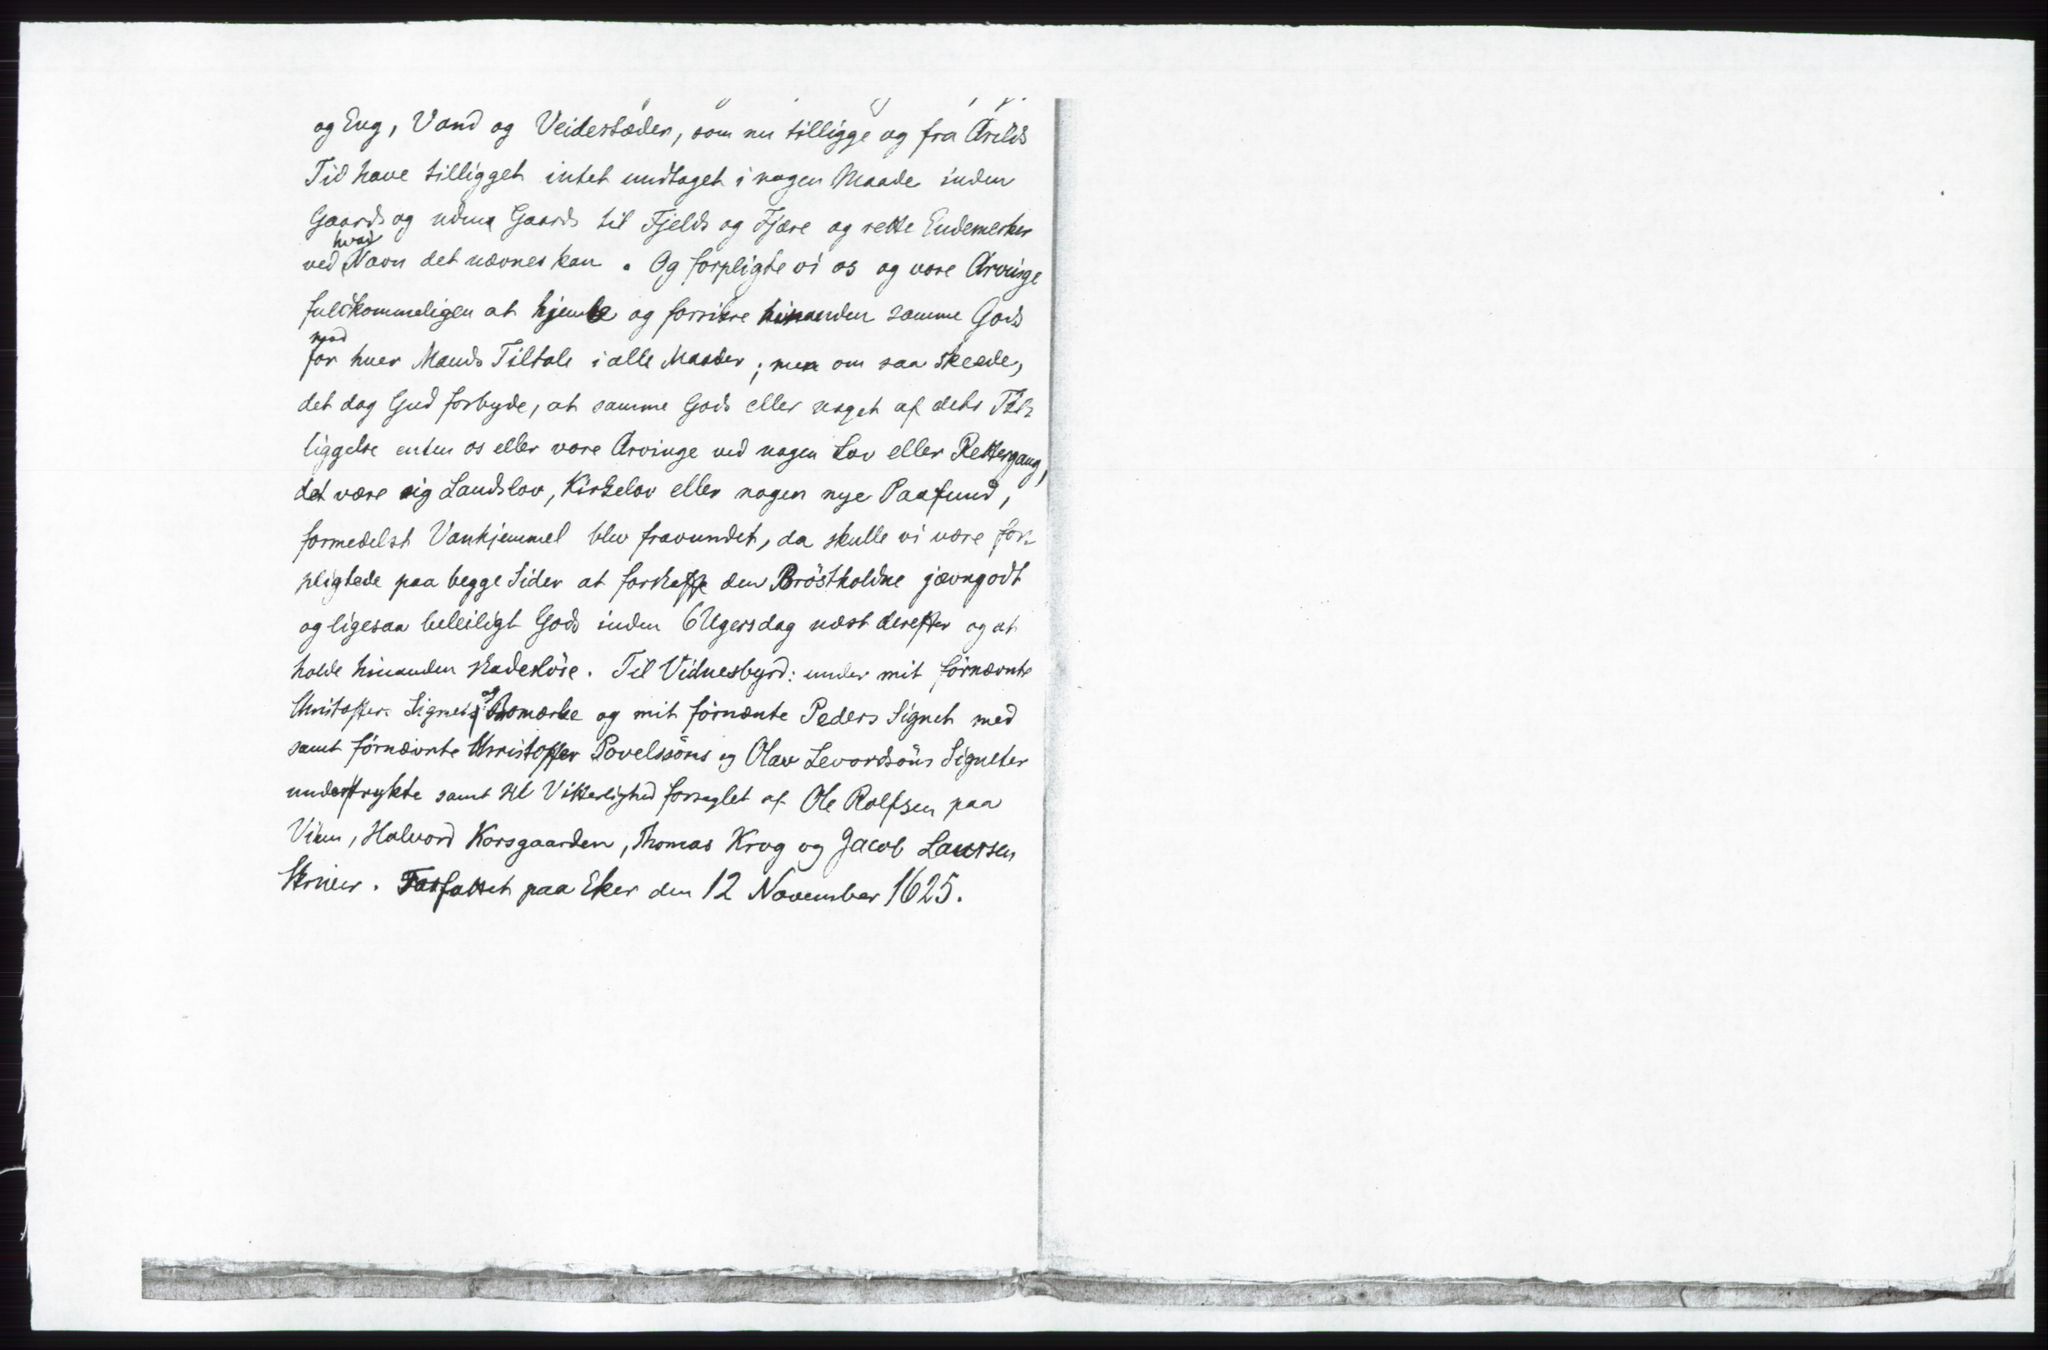 og Eng, Vand og Veidestæder, som nu tilligge og fra Arilds
Tid have tilligget intet undtaget i nogen Maade inden
Gaards og uden Gaards til Fjelds og Fjære og rette Endemerker
ved hvad Navn det nævnes kan. Og forpligte vi os og vore Arvinge
fuldkommeligen at hjemle og forsikre hinanden samme Gods
mod hver Mands Tiltale i alle Maader; men om saa skeede,
det dog Gud forbyde, at samme Gods eller noget af dets Til-
liggelse enten os eller vore Arvinge ved nogen Lov eller Rettergang,
det være sig Landslov, Kirkelov eller nogen nye Paafund,
formedelst Vanhjemmel blev fravundet, da skulle vi være for-
pligtede paa begge Sider at forskaffe den Bröstholdne jævngodt
og ligesaa beleiligt Gods inden 6 Ugersdag næst derefter og at
holde hinanden skadeslöse. Til Vidnesbyrd: under mit fornævnte
Christoffers Signet og Bomærke og mit fornænte Peders Signet med
samt förnævnte Christoffer Povelssöns og Olav Levordsöns Signeter
undertrykte samt til Vitterlighed forseglet af Ole Rolfsen paa
Viun, Halvord Korsgaarden, Thomas Krog og Jacob Laursen
Skriver. Forfattet paa Eker den 12 November 1625.